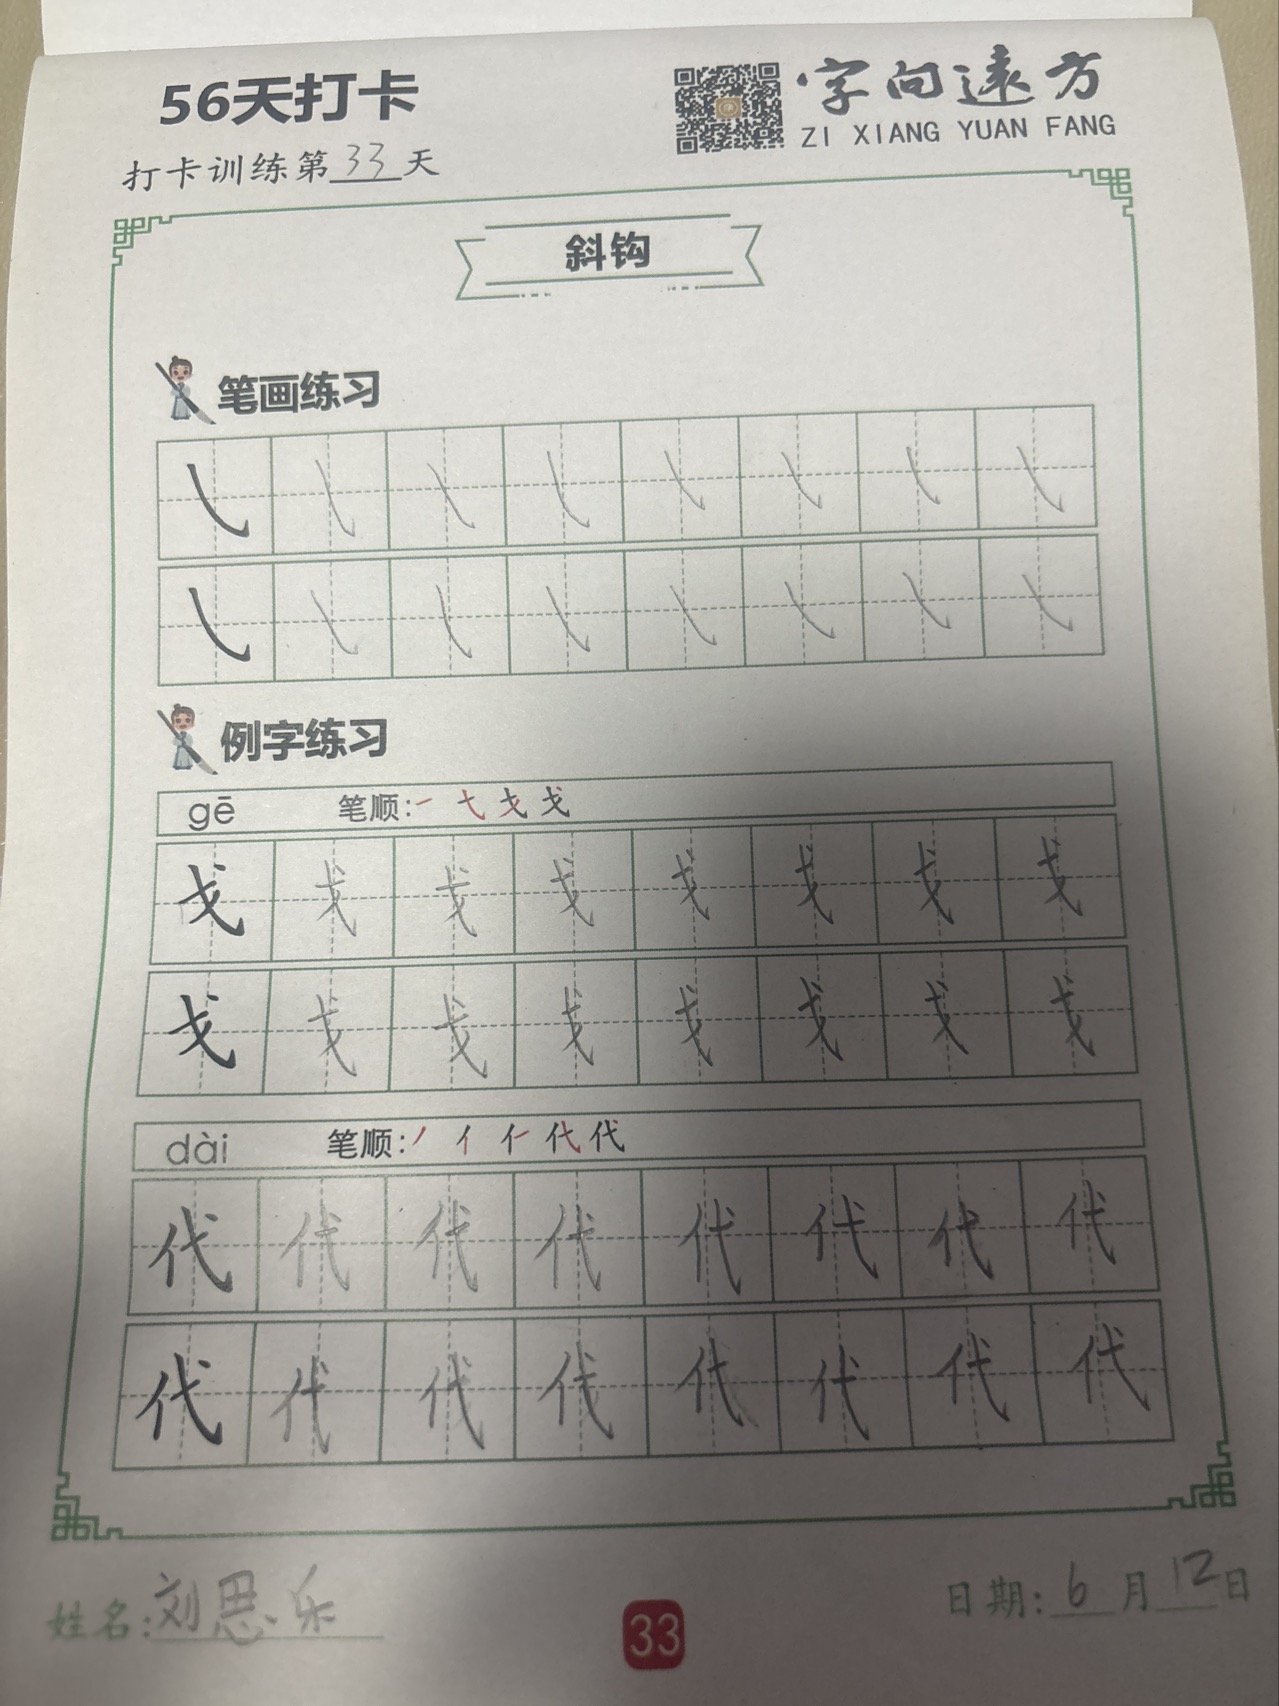 56天打卡
字向远方
ZI XIANG YUAN FANG
打卡训练第33天
斜钩
笔画练习
㇂ ㇂ ㇂ ㇂ ㇂ ㇂ ㇂ ㇂
㇂ ㇂ ㇂ ㇂ ㇂ ㇂ ㇂ ㇂
例字练习
gē 笔顺: 一 弋 戈 戈
戈 戈 戈 戈 戈 戈 戈 戈
戈 戈 戈 戈 戈 戈 戈 戈
dài 笔顺: 丿 亻 仁 代 代
代 代 代 代 代 代 代 代
代 代 代 代 代 代 代 代
姓名:刘思乐
33
日期:6月12日